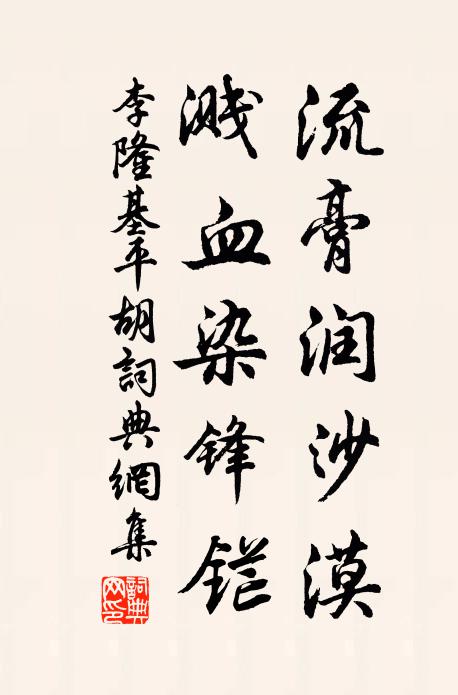 流膏润沙漠
溅血染锋铓
李隆基平胡詞典網集
詞典网印